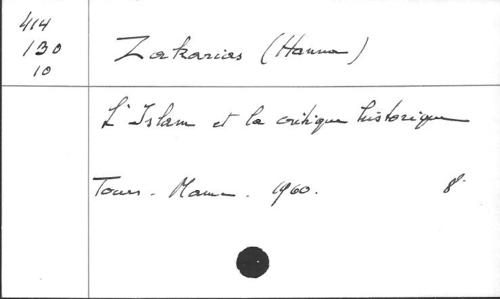 414
130
10
Zakarias (Hanna)
L'Islam et la critique historique
Tours - Mame - 1960.
8°